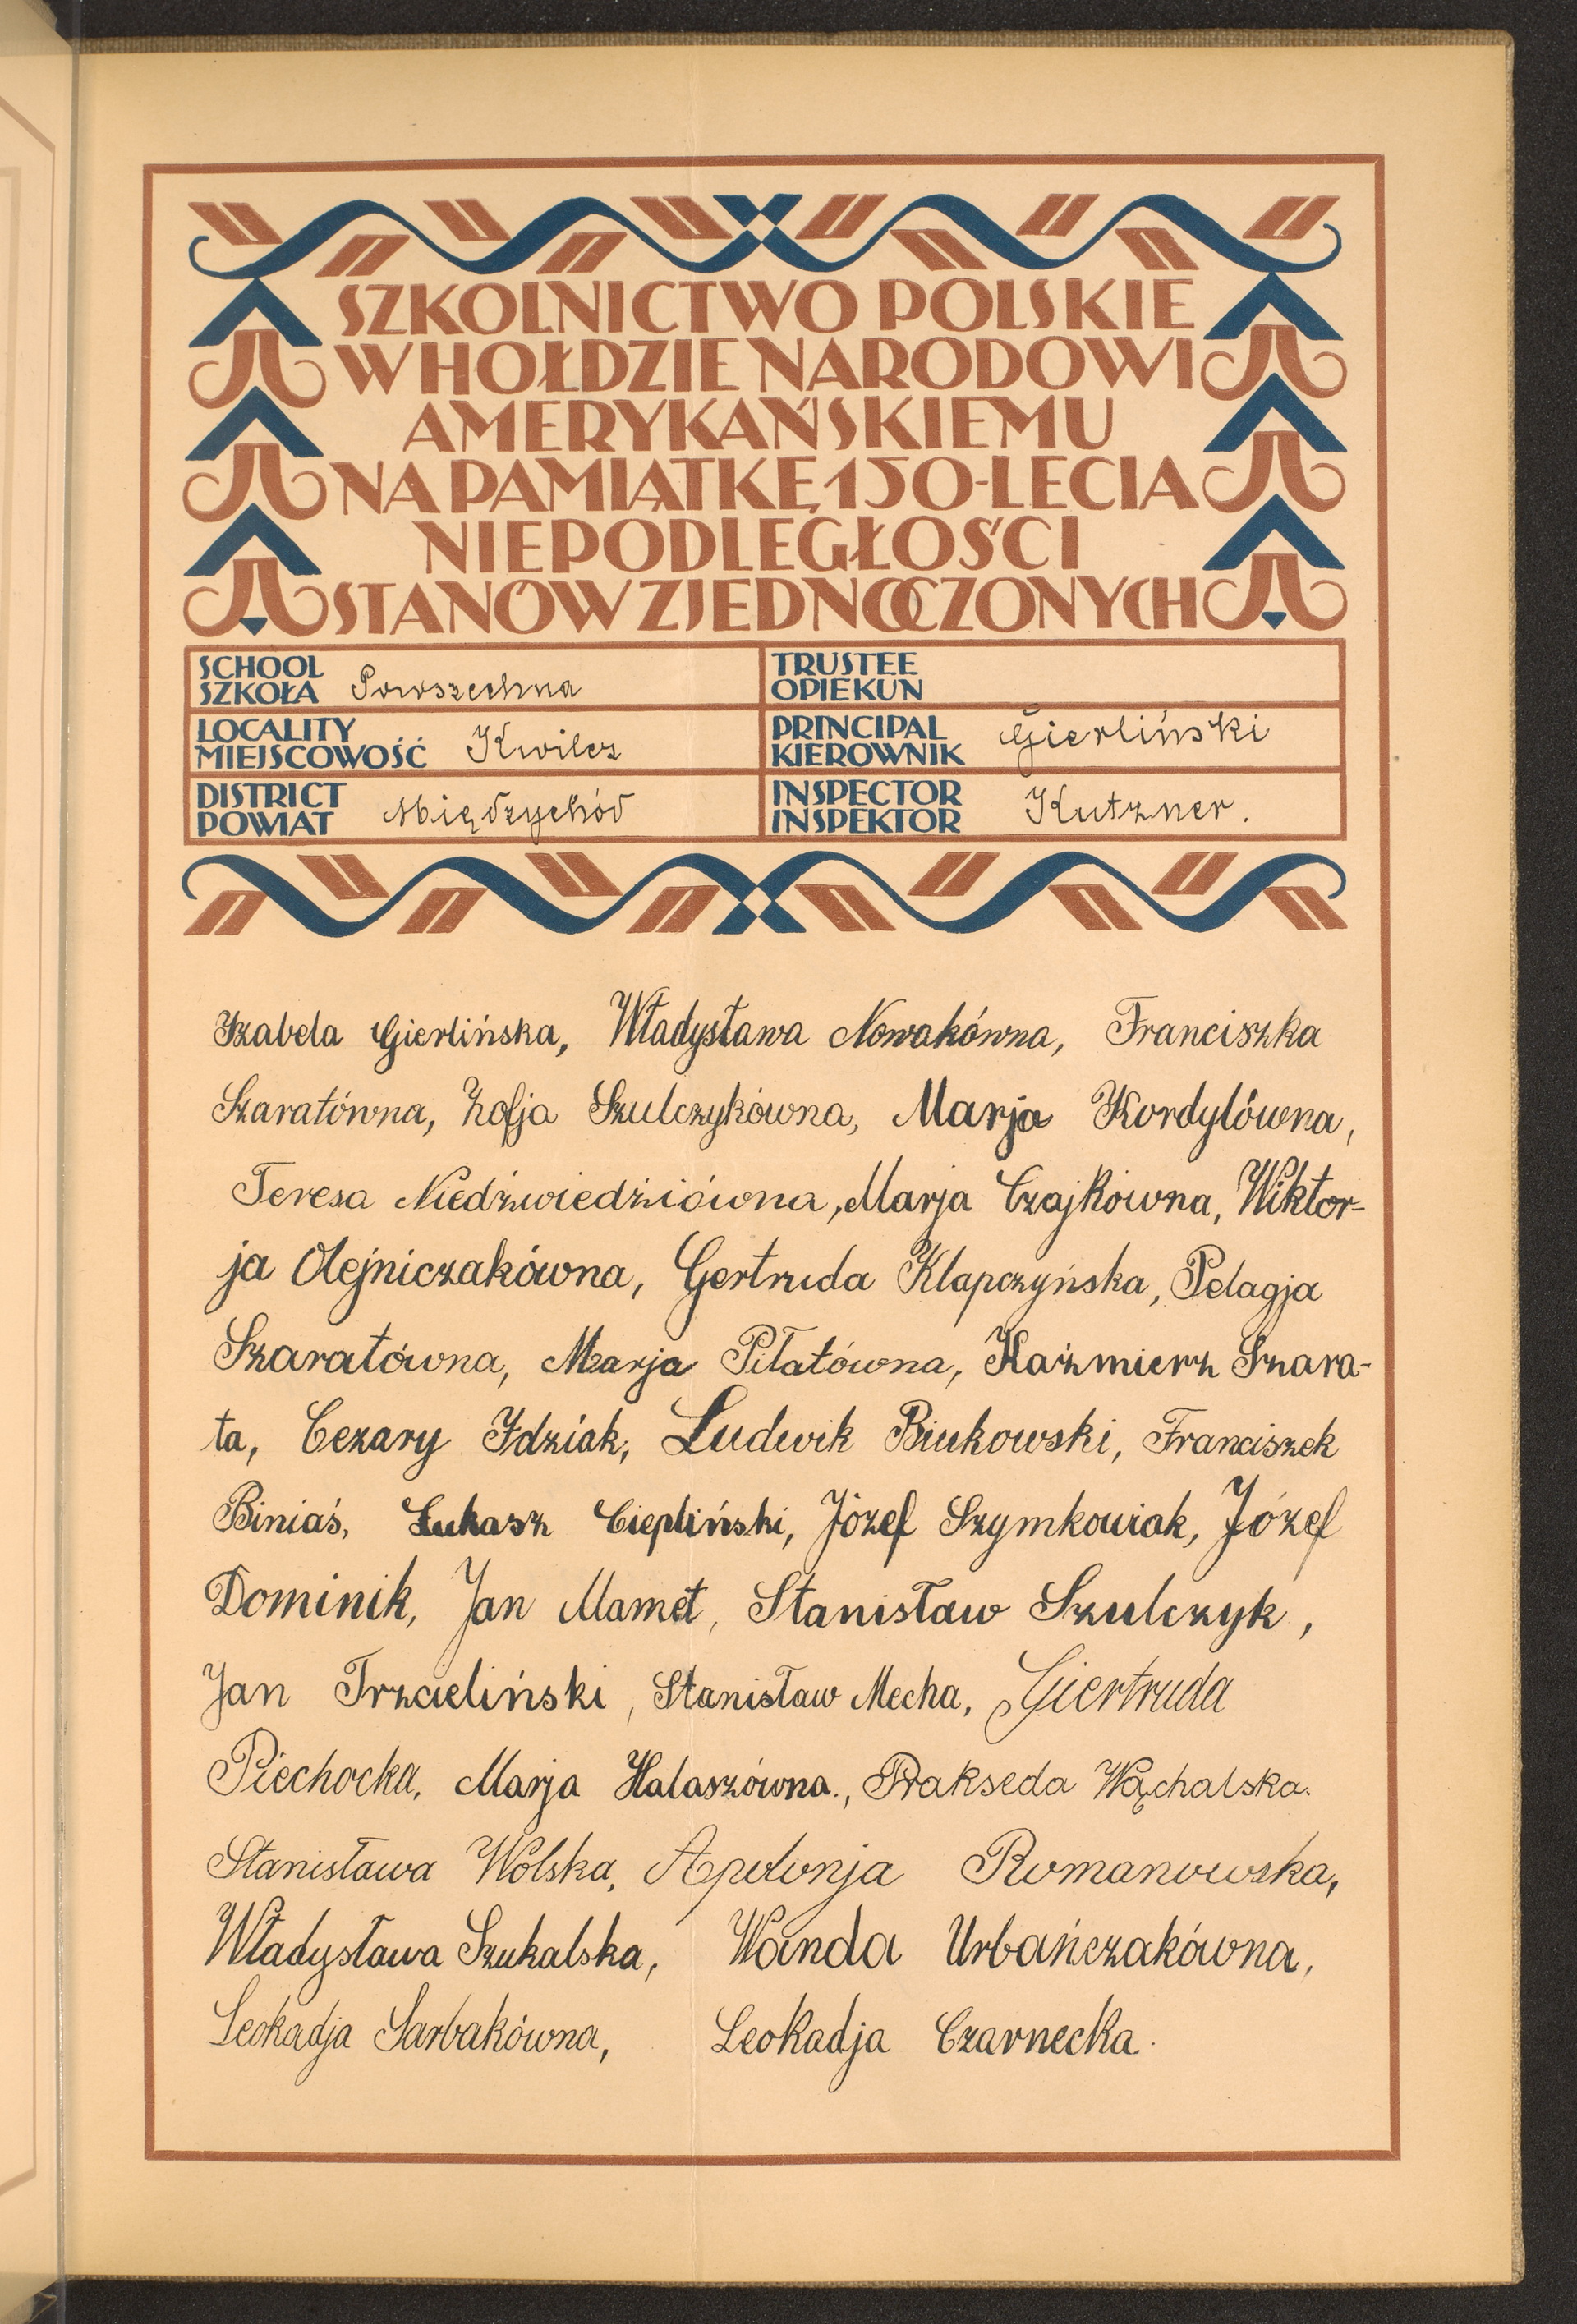 SZKOLNICTWO POLSKIE
W HOŁDZIE NARODOWI
AMERYKAŃSKIEMU
NA PAMIĄTKĘ 150-LECIA
NIEPODLEGŁOŚCI
STANÓW ZJEDNOCZONYCH
SCHOOL
SZKOŁA Powszechna
TRUSTEE
OPIEKUN
LOCALITY
MIEJSCOWOŚĆ Kwilcz
PRINCIPAL
KIEROWNIK Gierliński
DISTRICT
POWIAT Międzychód
INSPECTOR
INSPEKTOR Kutzner.
Izabela Gierlińska, Władysława Nowakówna, Franciszka
Szaratówna, Zofja Szulczykówna, Marja Kordylówna,
Teresa Niedźwiedziówna, Marja Czajkówna, Wiktor-
ja Olejniczakówna, Gertruda Klapczyńska, Pelagja
Szaratówna, Marja Piłatówna, Kaźmierz Szara-
ta, Cezary Idziak, Ludwik Binkowski, Franciszek
Biniaś, Łukasz Ciepliński, Józef Szymkowiak, Józef
Dominik, Jan Mamet, Stanisław Szulczyk,
Jan Trzcieliński, Stanisław Mecha, Giertruda
Piechocka, Marja Halaszówna., Prakseda Wąchalska.
Stanisława Wolska, Apolonja Romanowska,
Władysława Szukalska, Wanda Urbańczakówna,
Leokadja Sarbakówna, Leokadja Czarnecka.